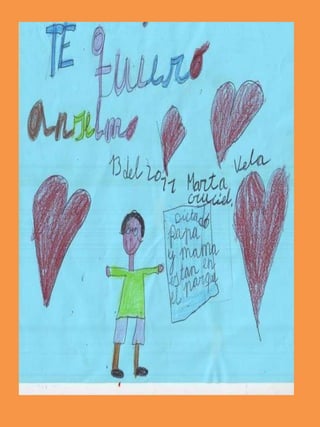 TE quiero
Anselmo
13 del 2011
Marta Vela
cruciel.
Dictado
papa
y mama
estan en
el parque